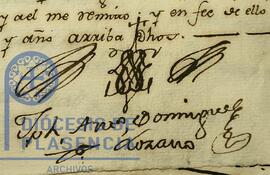 y ael me remito, y en fee de ello
y año arriba dhos.
Dominguez
Lozano
DIÓCESIS DE
PLASENCIA
ARCHIVOS